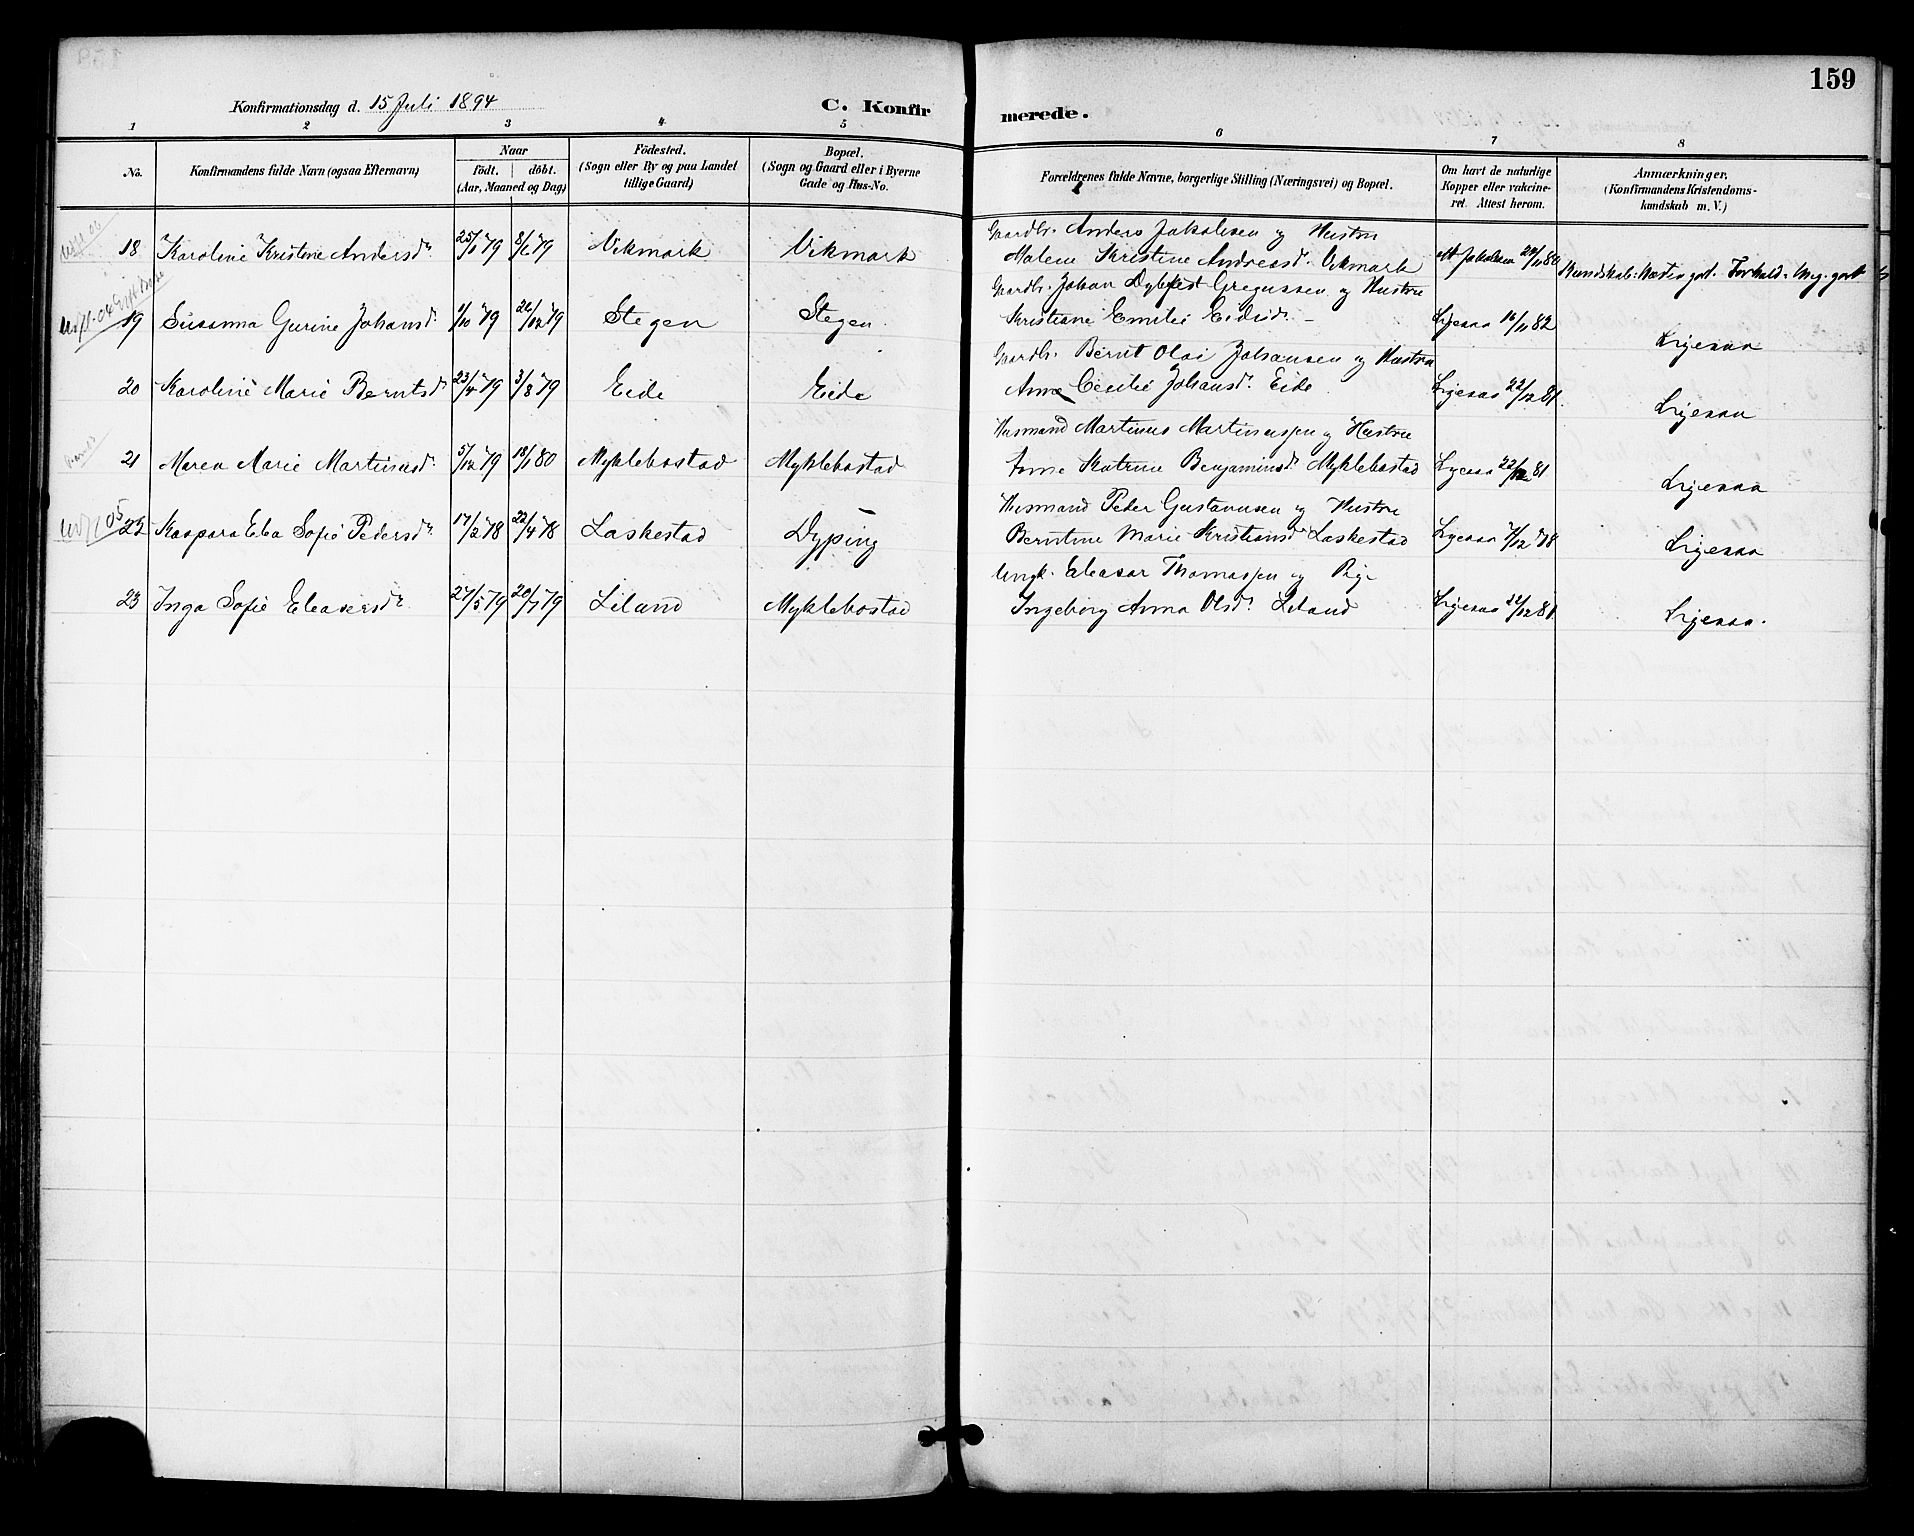 159
Konfirmationsdag d. 15 Juli 1894
C. Konfirmerede.
1 2 3 4 5 6 7 8
No.
Konfirmandens fulde Navn (ogsaa Efternavn)
Naar
födt. döbt.
(Aar, Maaned og Dag)
Födested.
(Sogn eller By og paa Landet
tillige Gaard)
Bopæl.
(Sogn og Gaard eller i Byerne
Gade og Hus-No.
Forældrenes fulde Navne, borgerlige Stilling (Næringsvei) og Bopæl.
Om havt de naturlige
Kopper eller vakcine-
ret. Attest herom.
Anmærkninger,
(Konfirmandens Kristendoms-
kundskab m. V.)
18 Karoline Kristine Andersdr. 25/1 79 8/6 79 Vikmark Vikmark
Gaardbr. Anders Jakobsen og Hustru
Malene Kristine Andreasd. Vikmark
Att Jakobsen 24/11 80
Kundskab: Næsten godt. Forhold: Meg. godt
19 Susanna Gurine Johansd. 1/10 79 26/12 79 Stegen Stegen.
Gaardbr. Johan Dybfest Gregussen og Hustru
Kristiane Emilie Eidisdr. –
Ligesaa 16/11 82
Ligesaa
20 Karoline Marie Berntsd. 23/4 79 3/8 79 Eide Eide
Gaardbr. Bernt Olai Johansen og Hustru
Anne Cecilie Johansd. Eide
Ligesaa 22/12 81.
Ligesaa
21 Maren Marie Martinusd. 5/12 79 18/1 80 Myklebostad Myklebostad
Husmand Martinus Martinussen og Hustru
Anne Katrine Benjaminsd. Myklebostad
Ligesaa 22/12 81
Ligesaa
22 Kaspara Eba Sofie Pedersdr. 17/2 78 22/4 78 Laskestad Dyping
Husmand Peder Gustavusen og Hustru
Berntine Marie Kristiansd. Laskestad
Ligesaa 7/12 78
Ligesaa
23 Inga Sofie Eleasersdr. 27/5 79 20/7 79 Liland Myklebostad
Ungk. Eleasar Thomassen og Pige
Ingeborg Anna Olsdr. Liland
Ligesaa 22/12 81.
Ligesaa.